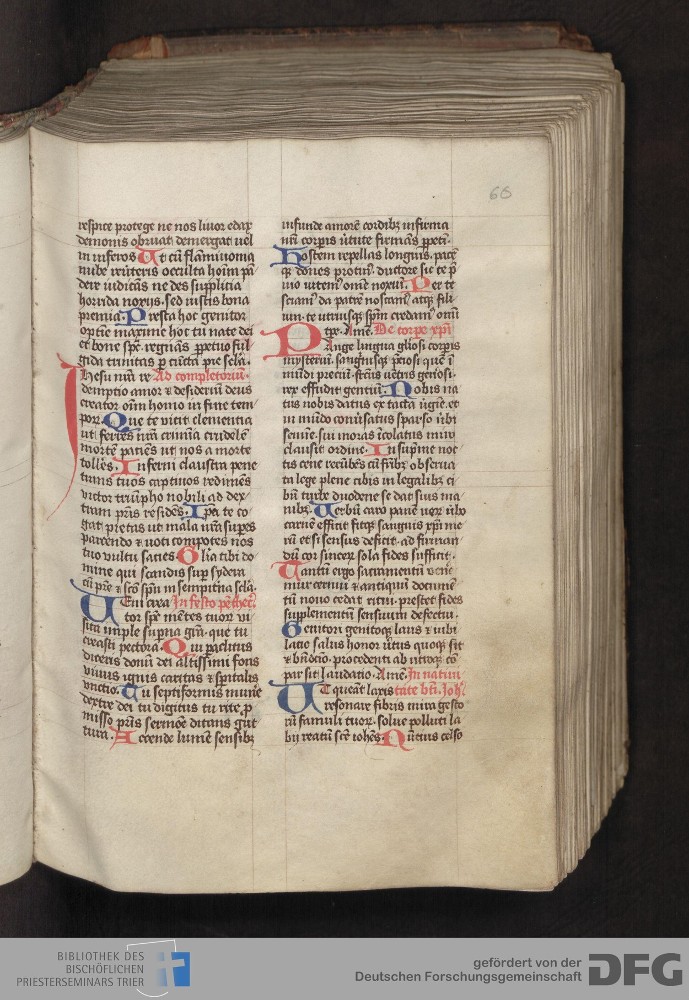 60
respice protege ne nos liuor edax
demonis obruat demergat uel
in inferos Ut cū flāmiuoma
nube reūteris occulta hoīm pā
dere iudicās ne des supplicia
horrida noxijs . sed iustis bona
premia . Presta hoc genitor
optīe maxime hoc tu nate dei
et bone spē . regnās ꝑpetuo ful
gida trinitas ꝑ cūcta pie sclā .
Ihesu nrā re Ad completoriū .
demptio amor ⁊ desideriū deus
creator oīm homo in fine tem
por̄ . Que te vicit clementia
ut ferres nrā crimīa crudelē
mortē paciēs ut nos a morte
tollēs . Inferni claustra pene
trans tuos captiuos redimēs
victor triūpho nobili ad dex
tram pr̄is residēs . Ipa te co
gat pietas ut mala nrā suꝑes
parcendo ⁊ voti compotes nos
tuo vultu sacies Glīa tibi do
mine qui scandis suꝑ sydera
cū prē ⁊ scō spū in sempitna sclā .
UEni crea In festo pēthec̄ .
tor spē mētes tuor̄ vi
sita imple suꝑna grā . que tu
creasti pectora . Qui paclitus
diceris donū dei altissimi fons
viuus ignis caritas ⁊ spiritalis
vnctio . Tu septiformis mune
dextre dei tu digitus tu rite ꝓ
misso pr̄is sermōe ditans gut
tura . Accende lumē sensibȝ
infunde amorē cordibȝ infirma
nrī corꝑis ūtute firmās ꝑpeti .
Hostem repellas longius . pacē
qꝫ dones protin . ductore sic te p̄
uio vitem omē noxiū . Per te
sciam da patrē noscam atqꝫ fili
um . te utriusqꝫ spm̄ credam omī
tpr̄e . Amē . De corpe xp̄i
PAnge lingua gliosi corꝑis
mysteriū . sanguisqꝫ p̄ciosi quē ī
mūdi preciū . frūctus uētris genosi .
rex effudit gentiū . Nobis na
tus nobis datus ex tacta ūgie . et
in mūdo conūsatus sparso ūbi
semīe . sui moras īcolatus miro
clausit ordine . In sup̄me noc
tis cene recūbēs cū fr̄ibȝ obserua
ta lege plene cibis in legalibȝ ci
bū turbe duodene se dat suis ma
nibȝ . Uerbū caro panē uer̄ ūbo
carnē efficit fitqꝫ sanguis xp̄i me
rū et si sensus deficit . ad firman
dū cor sincer̄ sola fides sufficit .
Tantū ergo sacramentū vene
mur cernui ⁊ antiquū documē
tū nouo cedat ritui . prestet fides
supplementū sensuum defectui .
Genitori genitoqꝫ laus ⁊ iubi
latio salus honor ūtus quoqꝫ sit
⁊ bn̄dctio . procedenti ab utroqꝫ cō
par sit laudatio . Amē . In natiui
UT queāt laxis tate bti . Joh̄ .
resonare fibris mira gesto
rū famuli tuor̄ . solue polluti la
bij reatū scē iohēs . Nūcius celso
BIBLIOTHEK DES
BISCHÖFLICHEN
PRIESTERSEMINARS TRIER
gefördert von der
Deutschen Forschungsgemeinschaft
DFG